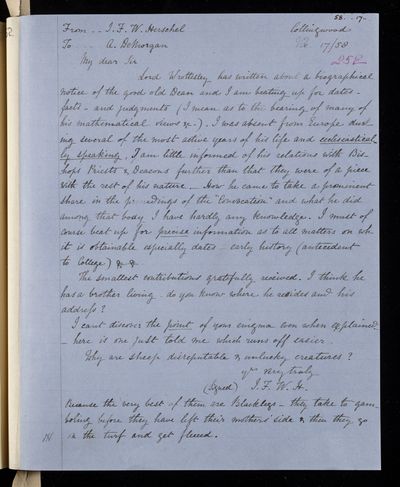 58. -17.
From - J. F. W. Herschel Collingwood
To - A. De Morgan Feb 17/58
252
My dear Sir
Lord Wrottesley has written about a biographical
notice of the good old Dean and I am beating up for dates -
facts - and judgments (I mean as to the bearing of many of
his mathematical views &c -). I was absent from Europe dur-
ing several of the most active years of his life and ecclesiastical-
ly speaking, I am little informed of his relations with Bis-
hops Priests & Deacons further than that they were of a piece
with the rest of his nature - How he came to take a prominent
share in the proceedings of the "Convocation" and what he did
among that body I have hardly any knowledge. I must of
course beat up for precise information as to all matters on wh
it is obtainable especially dates - early history (antecedent
to College)
The smallest contributions gratefully received. I think he
has a brother living - do you know where he resides and his
address?
I cant discover the point of your enigma even when explained
- here is one just told me which runs off easier.
Why are sheep disreputable & unlucky creatures?
yrs very truly
(signed) J. F. W. H.
Because the very best of them are Blacklegs - they take to gam-
boling before they have left their mothers' side & then they go
on the turf and get fleeced.